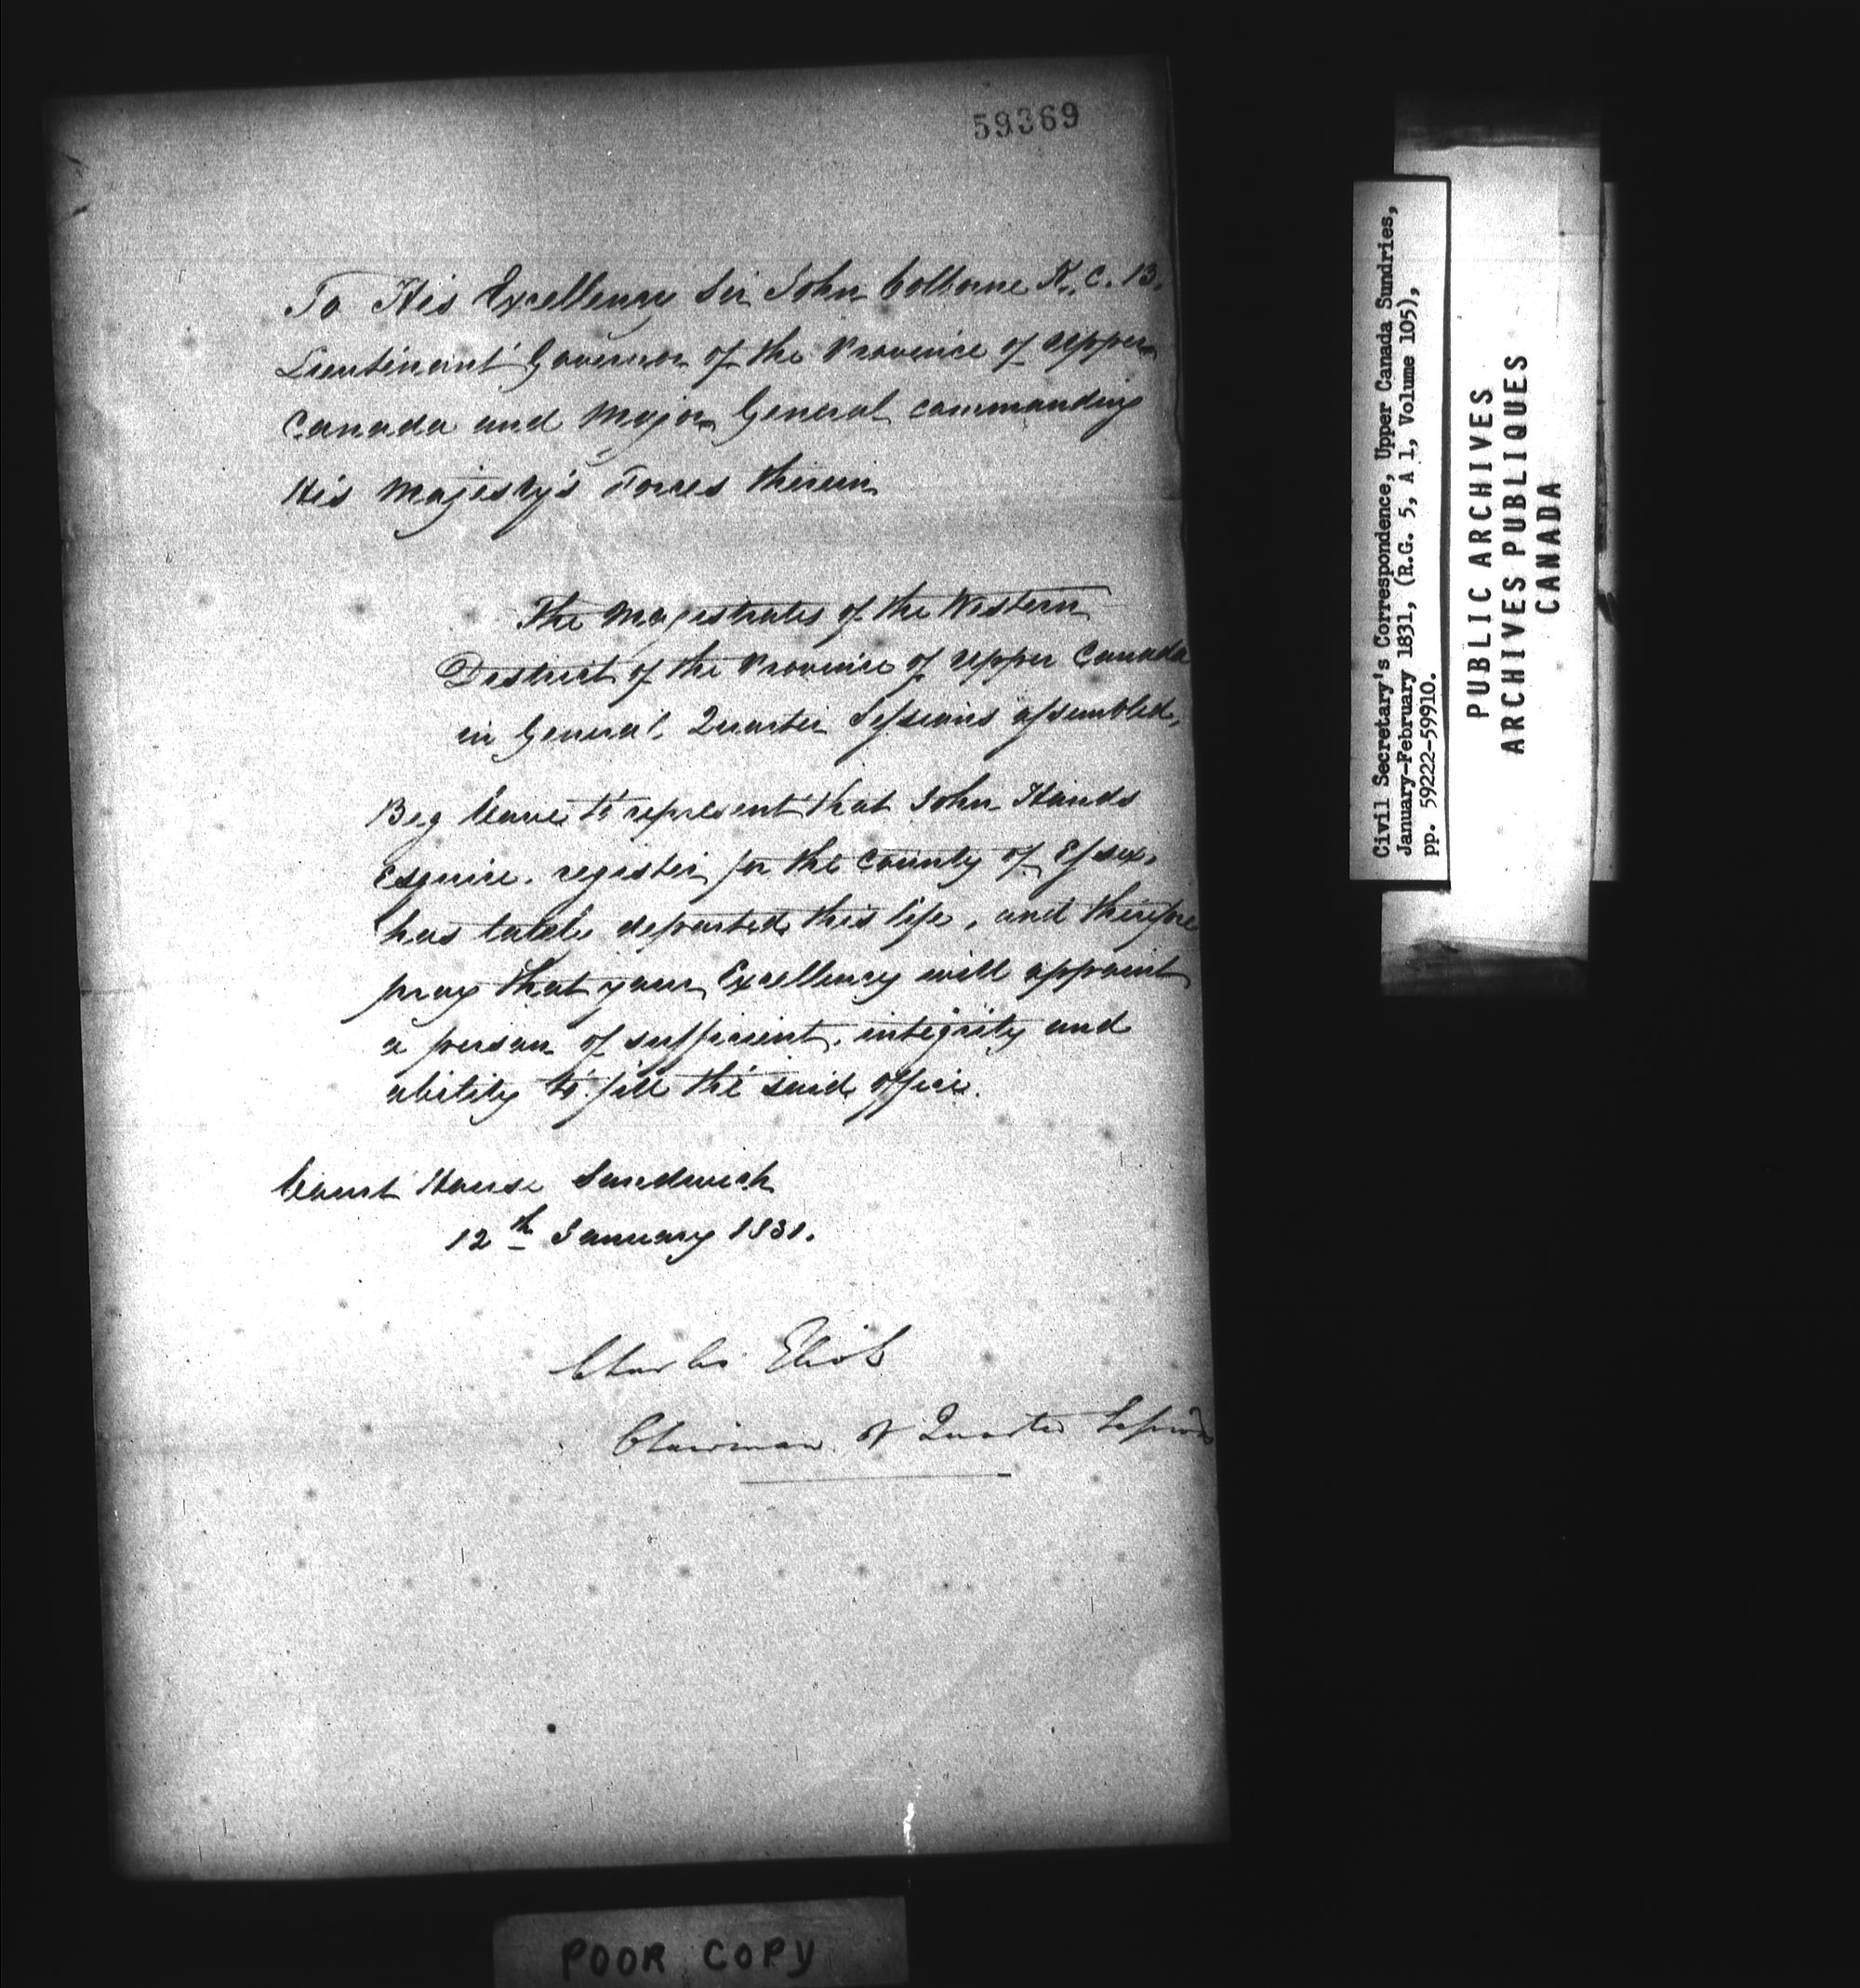 59369
To His Excellency Sir John Colborne K. C. B.
Lieutenant Governor of the Province of Upper
Canada and Major General commanding
His Majesty's Forces therein
The Magistrates of the Western
District of the Province of Upper Canada
in General Quarter Sessions assembled,
Beg leave to represent that John Hands
Esquire. register for the County of Essex,
has lately departed this life, and therefore
pray that your Excellency will appoint
a person of sufficient integrity and
ability to fill the said office.
Court House Sandwich
12th January 1831.
Charles Eliot
Chairman of Quarter Sessions
POOR COPY
Civil Secretary's Correspondence, Upper Canada Sundries,
January-February 1831, (R.G. 5, A 1, Volume 105),
pp. 59222-59910.
PUBLIC ARCHIVES
ARCHIVES PUBLIQUES
CANADA